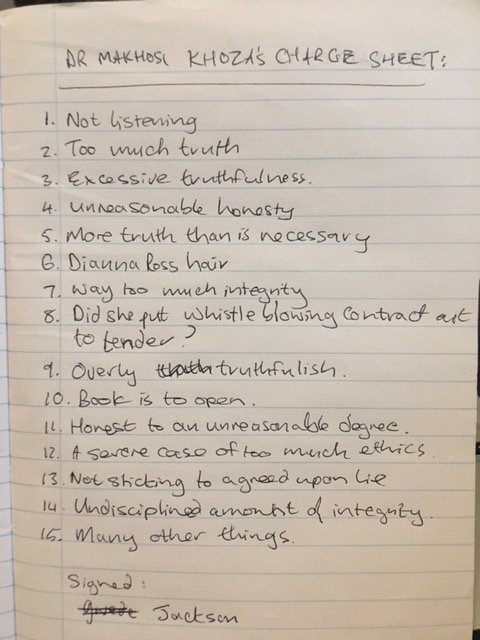 DR MAKHOSI KHOZA'S CHARGE SHEET:
1. Not listening
2. Too much truth
3. Excessive truthfulness.
4. unreasonable honesty
5. More truth than is necessary
6. Dianna Ross hair
7. Way too much integrity
8. Did she put whistle blowing contract out
to tender?
9. Overly truthfulish.
10. Book is to open.
11. Honest to an unreasonable degree.
12. A severe case of too much ethics.
13. Not sticking to agreed upon lie
14. Undisciplined amount of integrity.
15. Many other things.
Signed:
Jackson